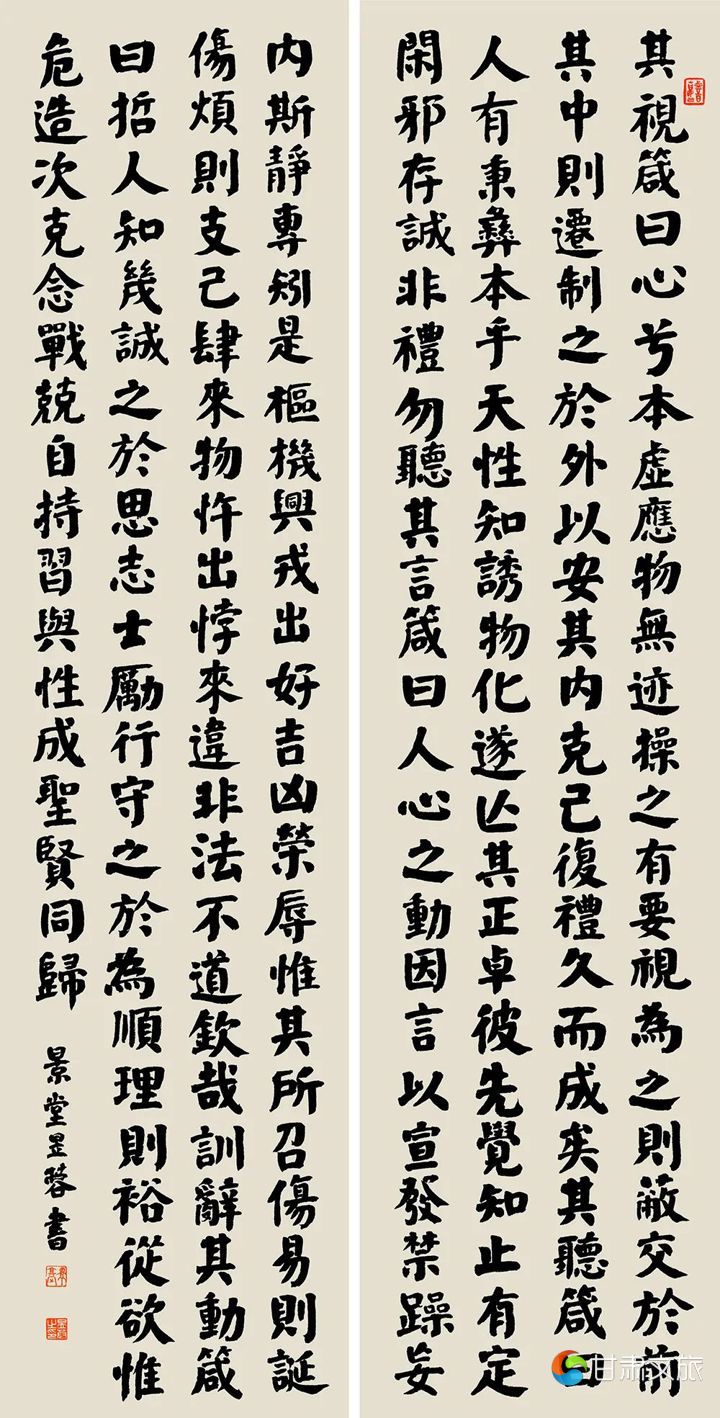 其視箴曰心兮本虛應物無迹操之有要視為之則蔽交於前
其中則遷制之於外以安其內克己復禮久而成矣其聽箴曰
人有秉彝本乎天性知誘物化遂亾其正卓彼先覺知止有定
閑邪存誠非禮勿聽其言箴曰人心之動因言以宣發禁躁妄
內斯靜專矧是樞機興戎出好吉凶榮辱惟其所召傷易則誕
傷煩則支己肆來物忤出悖來違非法不道欽哉訓辭其動箴
曰哲人知幾誠之於思志士勵行守之於為順理則裕從欲惟
危造次克念戰兢自持習與性成聖賢同歸
景堂昱蓉書
甘肃文旅